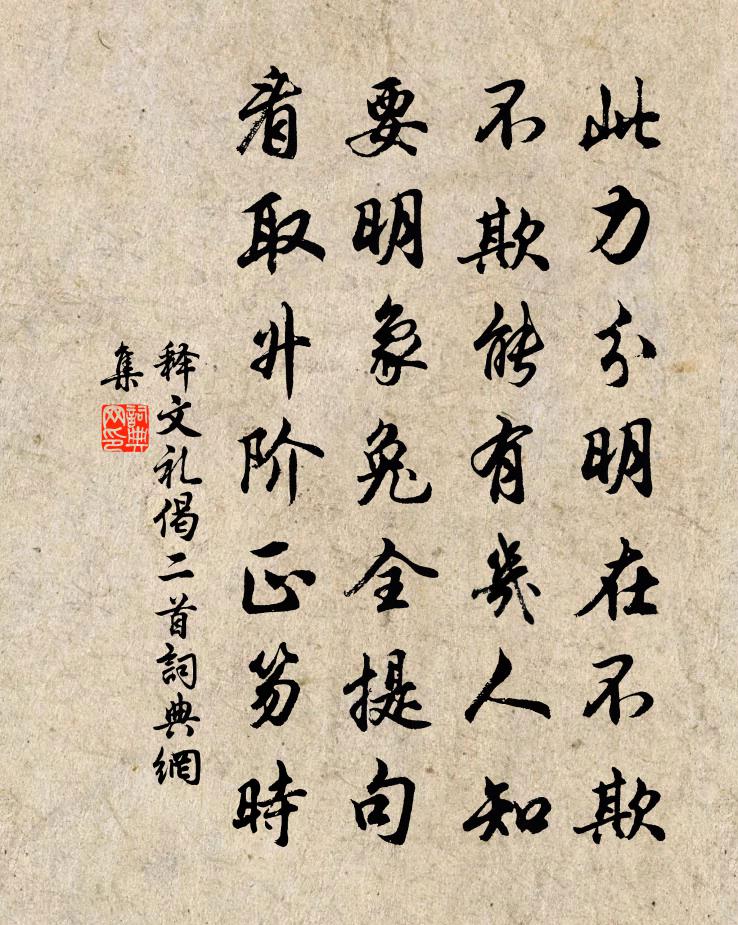 此力分明在不欺
不欺能有幾人知
要明象兔全提句
看取升阶正笏時
释文礼偈二首詞典網
集
詞典网印